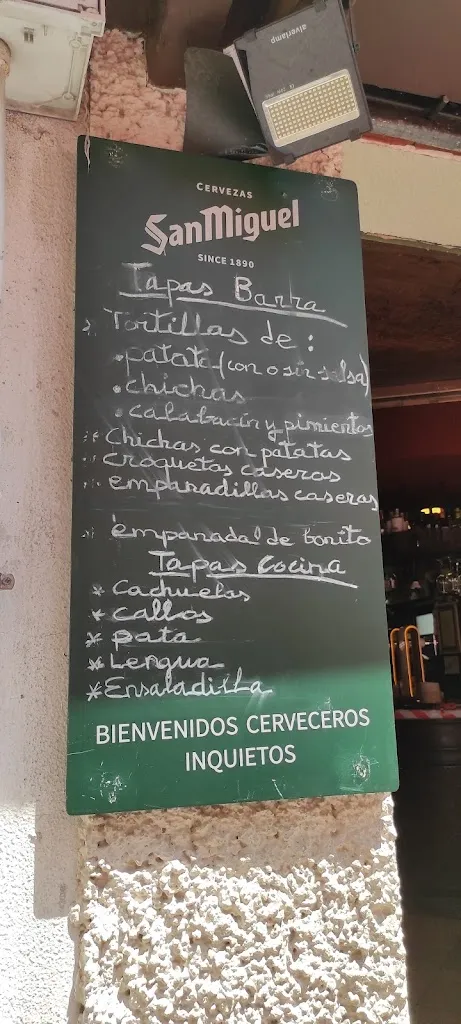 alverlamp
CERVEZAS
San Miguel
SINCE 1890
Tapas Barra
* Tortillas de:
• patata (con o sin salsa)
• chichas
• calabacín y pimientos
* Chichas con patatas
* croquetas caseras
* empanadillas caseras
* empanada de bonito
Tapas Cocina
* Cachuelas
* callos
* pata
* Lengua
* Ensaladilla
BIENVENIDOS CERVECEROS
INQUIETOS